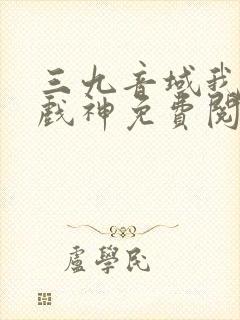 三九音域我
戲神免費閱
盧學民